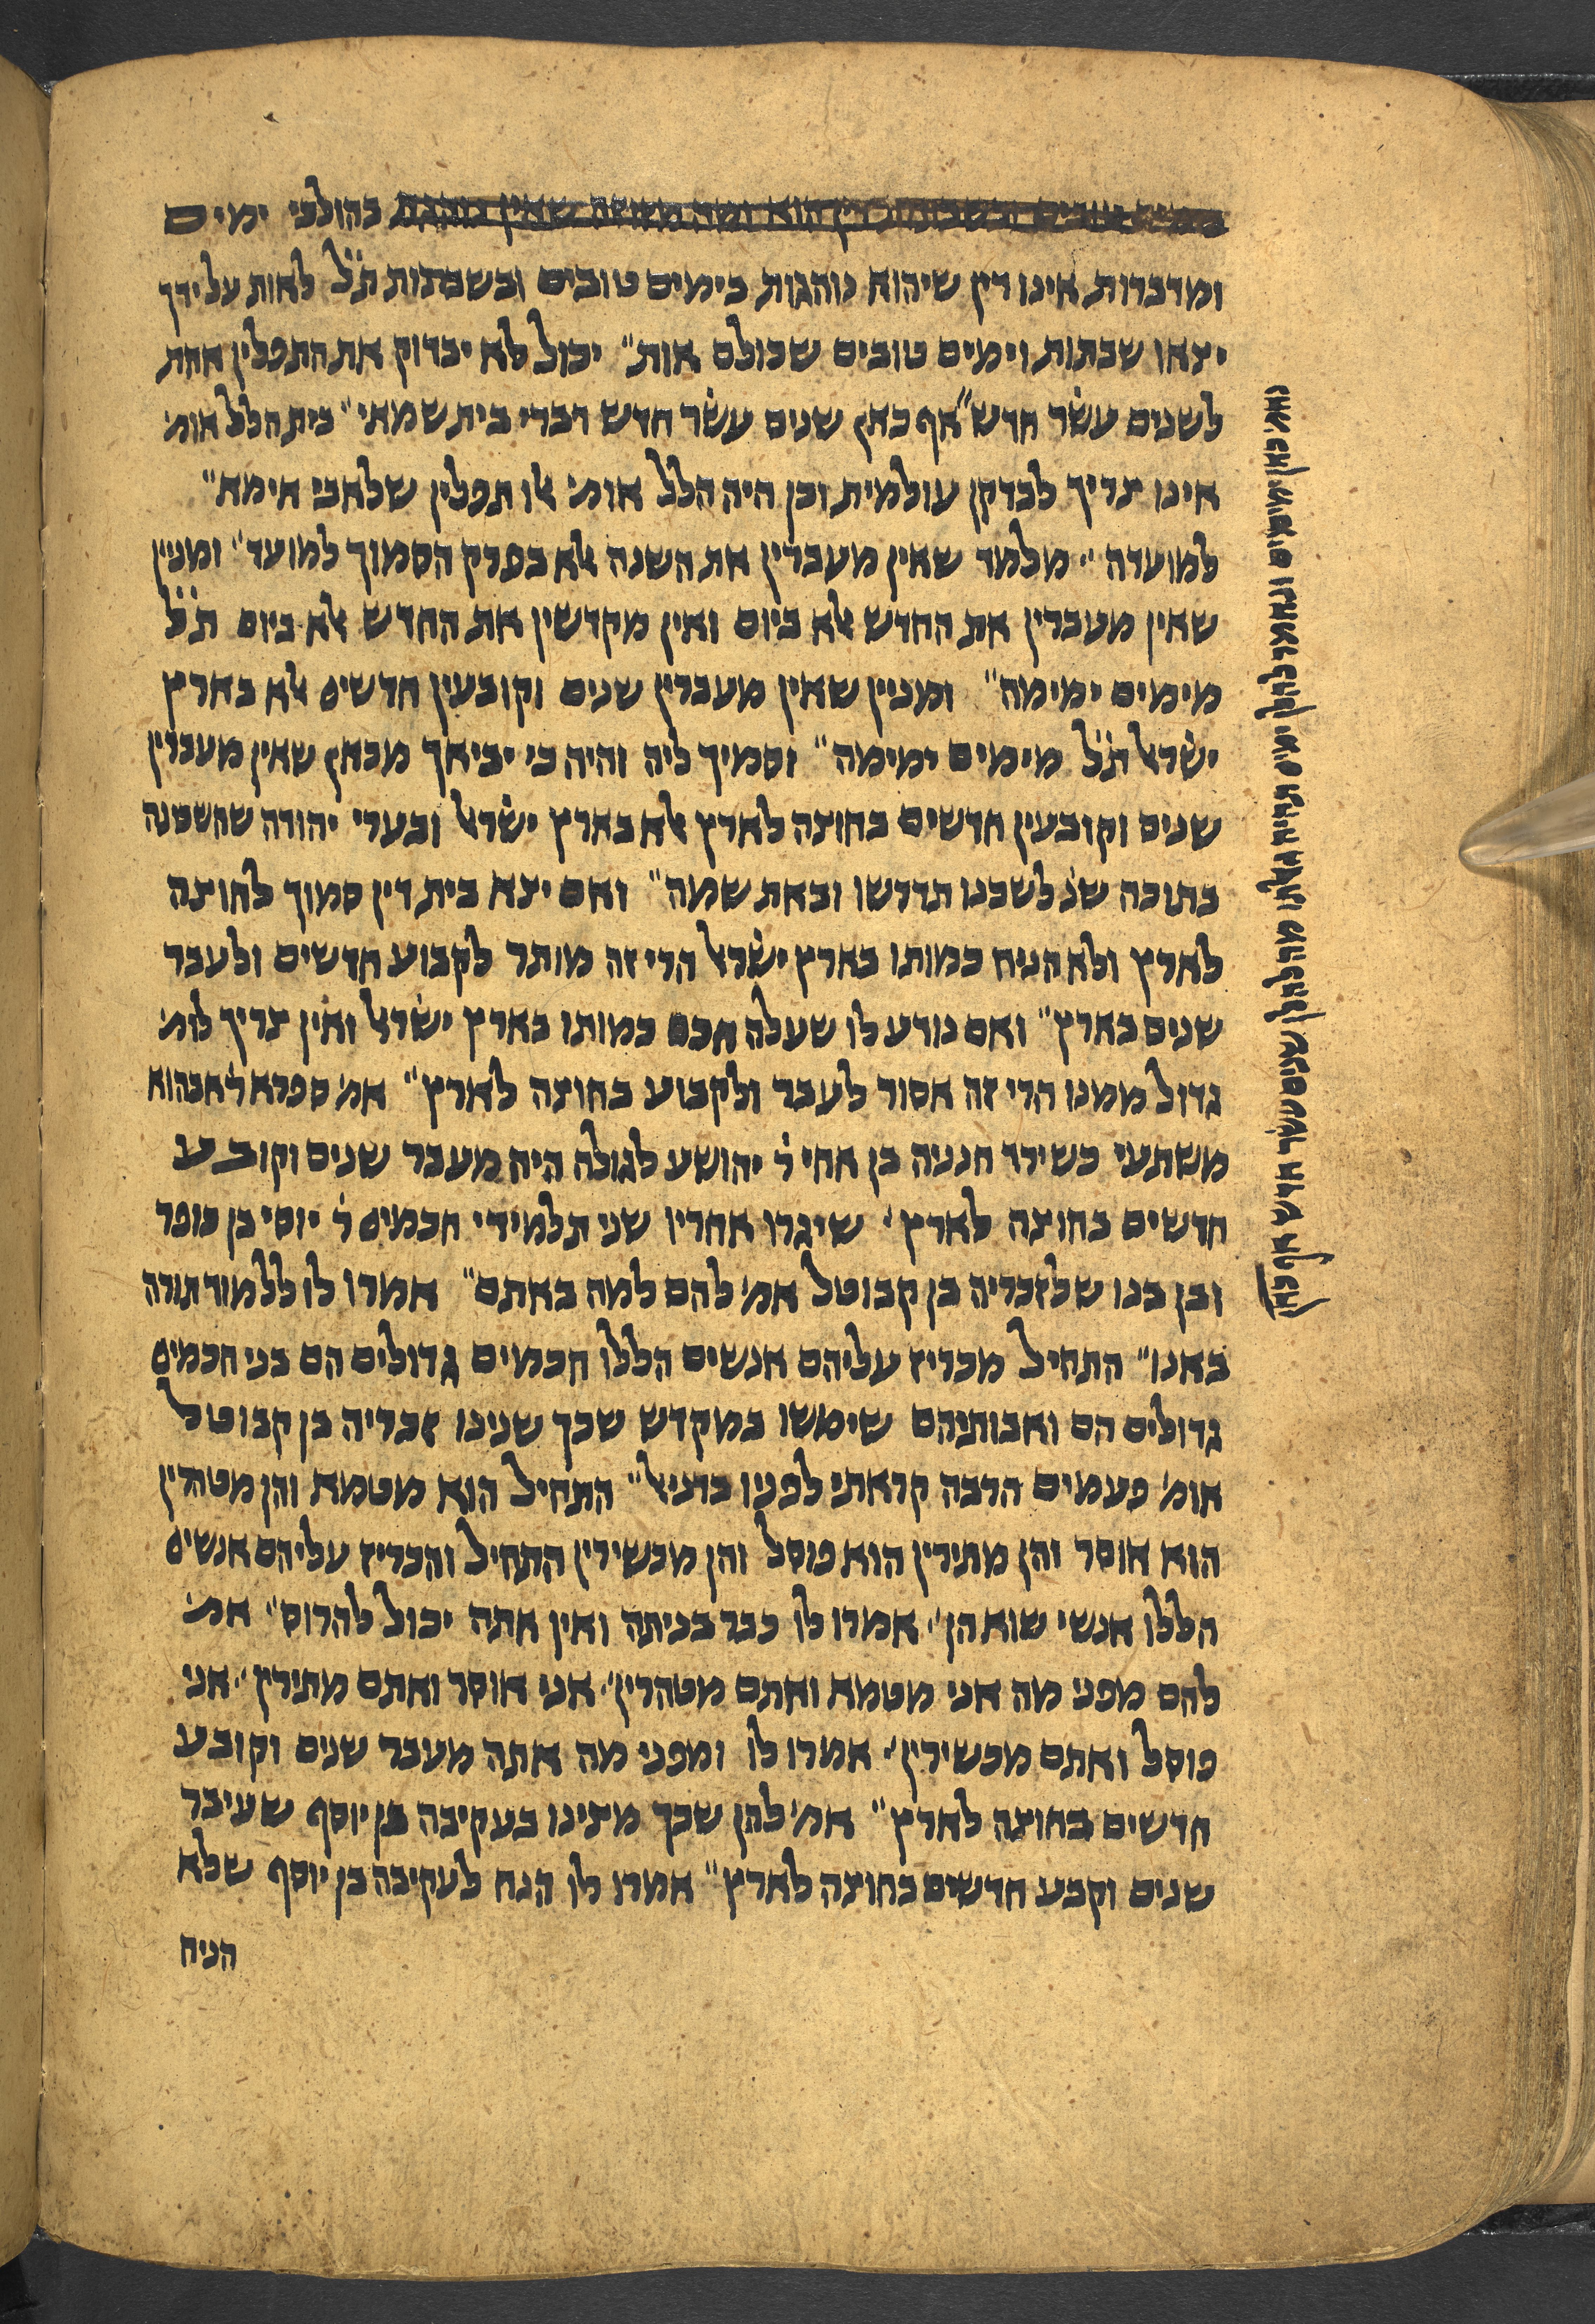 בהולכי ימים
ומדברות אינו דין שיהוא נוהגות בימים טובים ובשבתות ת"ל לאות על ידך
יצאו שבתות וימים טובים שכולם אות" יכול לא יבדוק את התפלין אחת
לשנים עשׂר חדש" אף כאן שנים עשׂר חדש דברי בית שמאי" בית הלל אומ'
אינו צריך לבדקן עולמית וכן היה הלל אומ' אלו תפלין שלאבי אימא"
למועדה" מלמד שאין מעברין את השנה אלא בפרק הסמוך למועד" ומנין
שאין מעברין את החדש אלא ביום ואין מקדשין את החדש אלא ביום ת"ל
מימים ימימה" ומניין שאין מעברין שנים וקובעין חדשים אלא בארץ
ישׂראל ת"ל מימים ימימה" וסמיך ליה והיה כי יביאך מכאן שאין מעברין
שנים וקובעין חדשים בחוצה לארץ אלא בארץ ישׂראל ובערי יהודה שהשכינה
בתוכה שנ' לשכנו תדרשו ובאת שמה" ואם יצא בית דין סמוך לחוצה
לארץ ולא הניח כמותו בארץ ישׂראל הרי זה מותר לקבוע חדשים ולעבר
שנים בארץ" ואם נודע לו שעלה חכם כמותו בארץ ישׂראל ואין צריך לומ'
גדול ממנו הרי זה אסור לעבר ולקבוע בחוצה לארץ" אמ' ספרא ר' אבהוא
משתעי כשירד חנניה בן אחי ר' יהושע לגולה היה מעבר שנים וקובע
חדשים בחוצה לארץ' שיגרו אחריו שני תלמידי חכמים ר' יוסי בן כופר
ובן בנו שלזכריה בן קבוטל אמ' להם למה באתם" אמרו לו ללמוד תורה
באנו" התחיל מכריז עליהם אנשים הללו חכמים גדולים הם בני חכמים
גדולים הם ואבותיהם שימשו במקדש שכך שנינו זכריה בן קבוטל
אומ' פעמים הרבה קראתי לפניו בדניאל" התחיל הוא מטמא והן מטהרין
הוא אוסר והן מתירין הוא פוסל והן מכשירין התחיל והכריז עליהם אנשים
הללו אנשי שוא הן". אמרו לו כבר בניתה ואין אתה יכול להרוס". אמ'
להם מפני מה אני מטמא ואתם מטהרין". אני אוסר ואתם מתירין". אני
פוסל ואתם מכשירין". אמרו לו ומפני מה אתה מעבר שנים וקובע
חדשים בחוצה לארץ" אמ' להן שכך מצינו בעקיבה בן יוסף שעיבר
שנים וקבע חדשים בחוצה לארץ" אמרו לו הנח לעקיבה בן יוסף שלא
הניח
נאמ' כאן מימים ונאמר להלן ימים תהיה גאלתו מה להלן שנים עשׂר חדש אף כאן